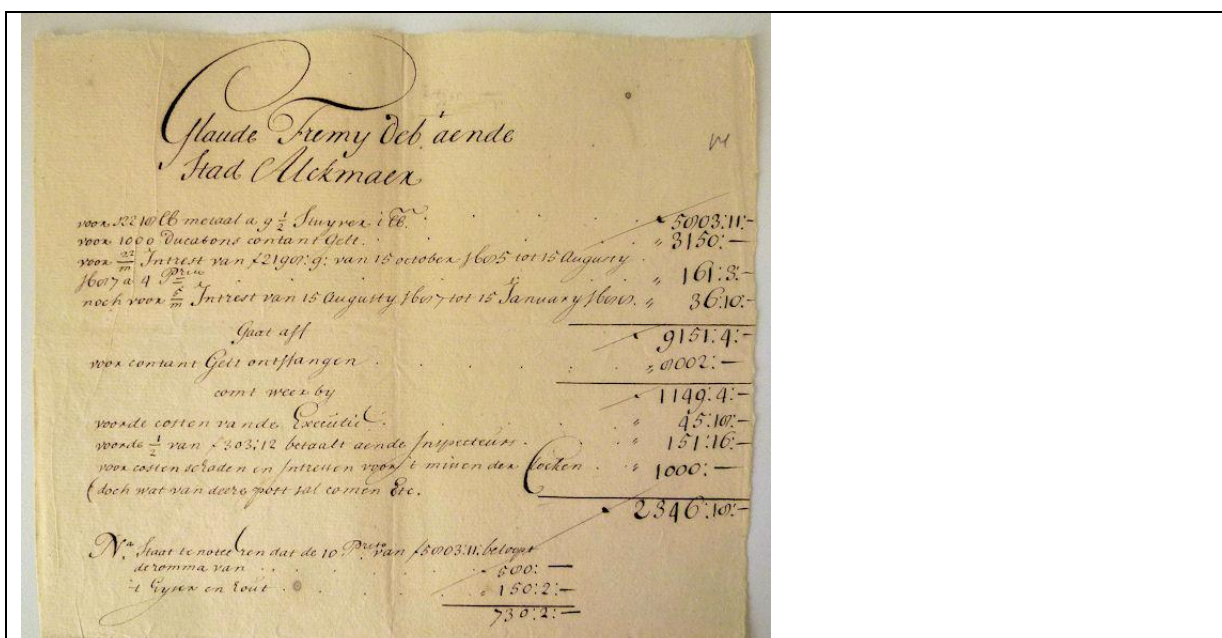 Glaude Fremy Deb. aende
Stad Alckmaer
voor 12218 lb metaal a 9 ½ Stuyver 't lb. 5803:11:-
voor 1000 Ducatons contant Gelt. " 3150:—
voor 22/m Intrest van f2198:9: van 15 october 1685 tot 15 Augusty
1687 a 4 Prcto " 161:3:-
noch voor 5/m Intrest van 15 Augusty 1687 tot 15 January 1688. " 36:10:-
9151:4:-
Gaat aff
voor contant Gelt ontffangen " 8002:—
1149:4:-
comt weer by
voorde costen vande Executie: " 45:18:-
voorde ½ van f303:12 betaalt aende Inspecteurs. " 151:16:-
voor costen schaden en Intressen voor 't missen der Clocken " 1000:—
(doch wat van deese post sal comen Etc.
2346:18:-
Na. Staat te noteeren dat de 10 Prcto van f5803:11: beloopt
de somma van 580:—
't Eyser en hout 150:2:-
730:2:—